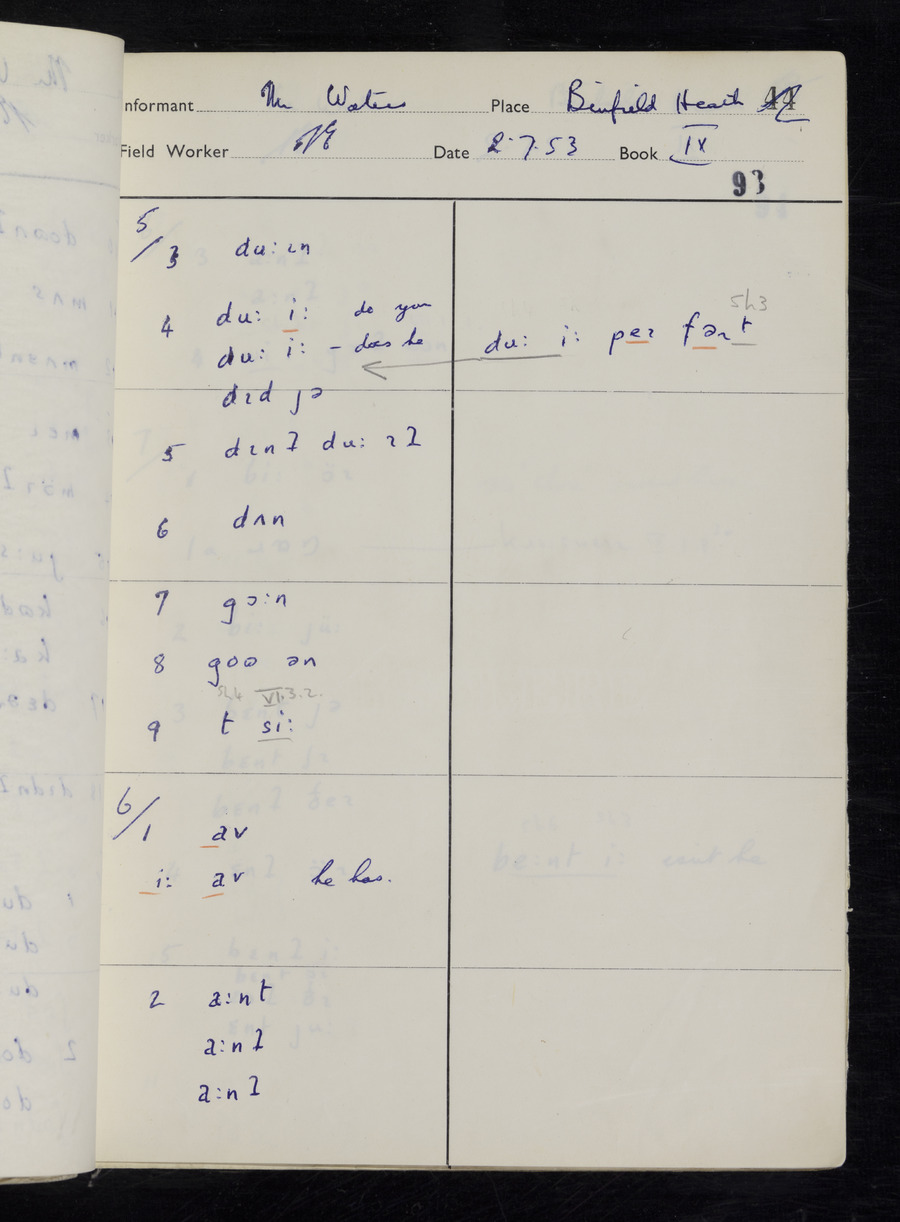 Informant Mr Waters Place Binfield Heath 44
Field Worker Date 2.7.53 Book IX
93
5/3 du:ɪn
5h3
4 du: i: do you
du: i: - does he du: i: peɪ fəɹt
dɪd jə
5 dɪnʔ du: ɪʔ
6 dʌn
7 gɔ:n
8 goɷ ən
5h4 VI.3.2.
9 t si:
6/1 av
i: av he has.
2 a:nt
a:nʔ
a:nʔ